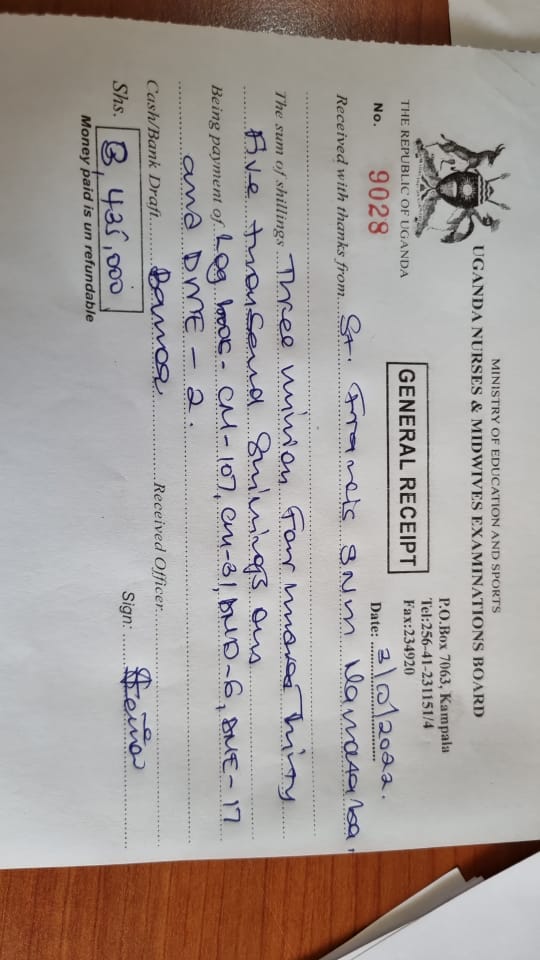 MINISTRY OF EDUCATION AND SPORTS
UGANDA NURSES & MIDWIVES EXAMINATIONS BOARD
THE REPUBLIC OF UGANDA
P.O.Box 7063, Kampala
Tel:256-41-231151/4
Fax:234920
GENERAL RECEIPT
No. 9028
Date: 3/10/2022.
Received with thanks from St. Francis SNM Namataba,
The sum of shillings Three million Four hundred Thirty
Five thousand Shillings only
Being payment of Log books - CM-107, CM-31, DND-6, DNE-17
and DME - 2.
Cash/Bank Draft Received Officer
Shs. 3,435,000 Sign:
Money paid is un refundable